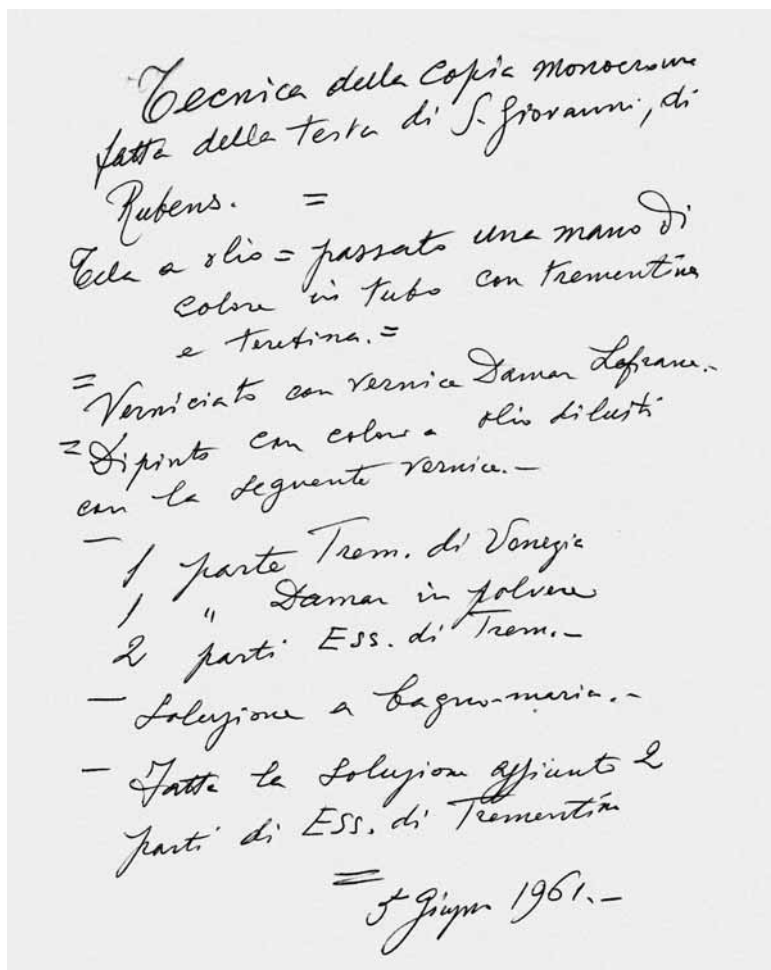 Tecnica della Copia monocroma
fatta della testa di S. Giovanni, di
Rubens. =
Tela a olio = passato una mano di
colore in tubo con trementina
e
= Verniciato con vernice Damar Lefranc.-
= Dipinto con colore a olio diluiti
con la seguente vernice.-
- 1 parte Trem. di Venezia
1 " Damar in polvere
2 parti Ess. di Trem.-
- Soluzione a bagno-maria.-
- Fatta la soluzione aggiunto 2
parti di Ess. di Trementina
=
5 Giugno 1961.-